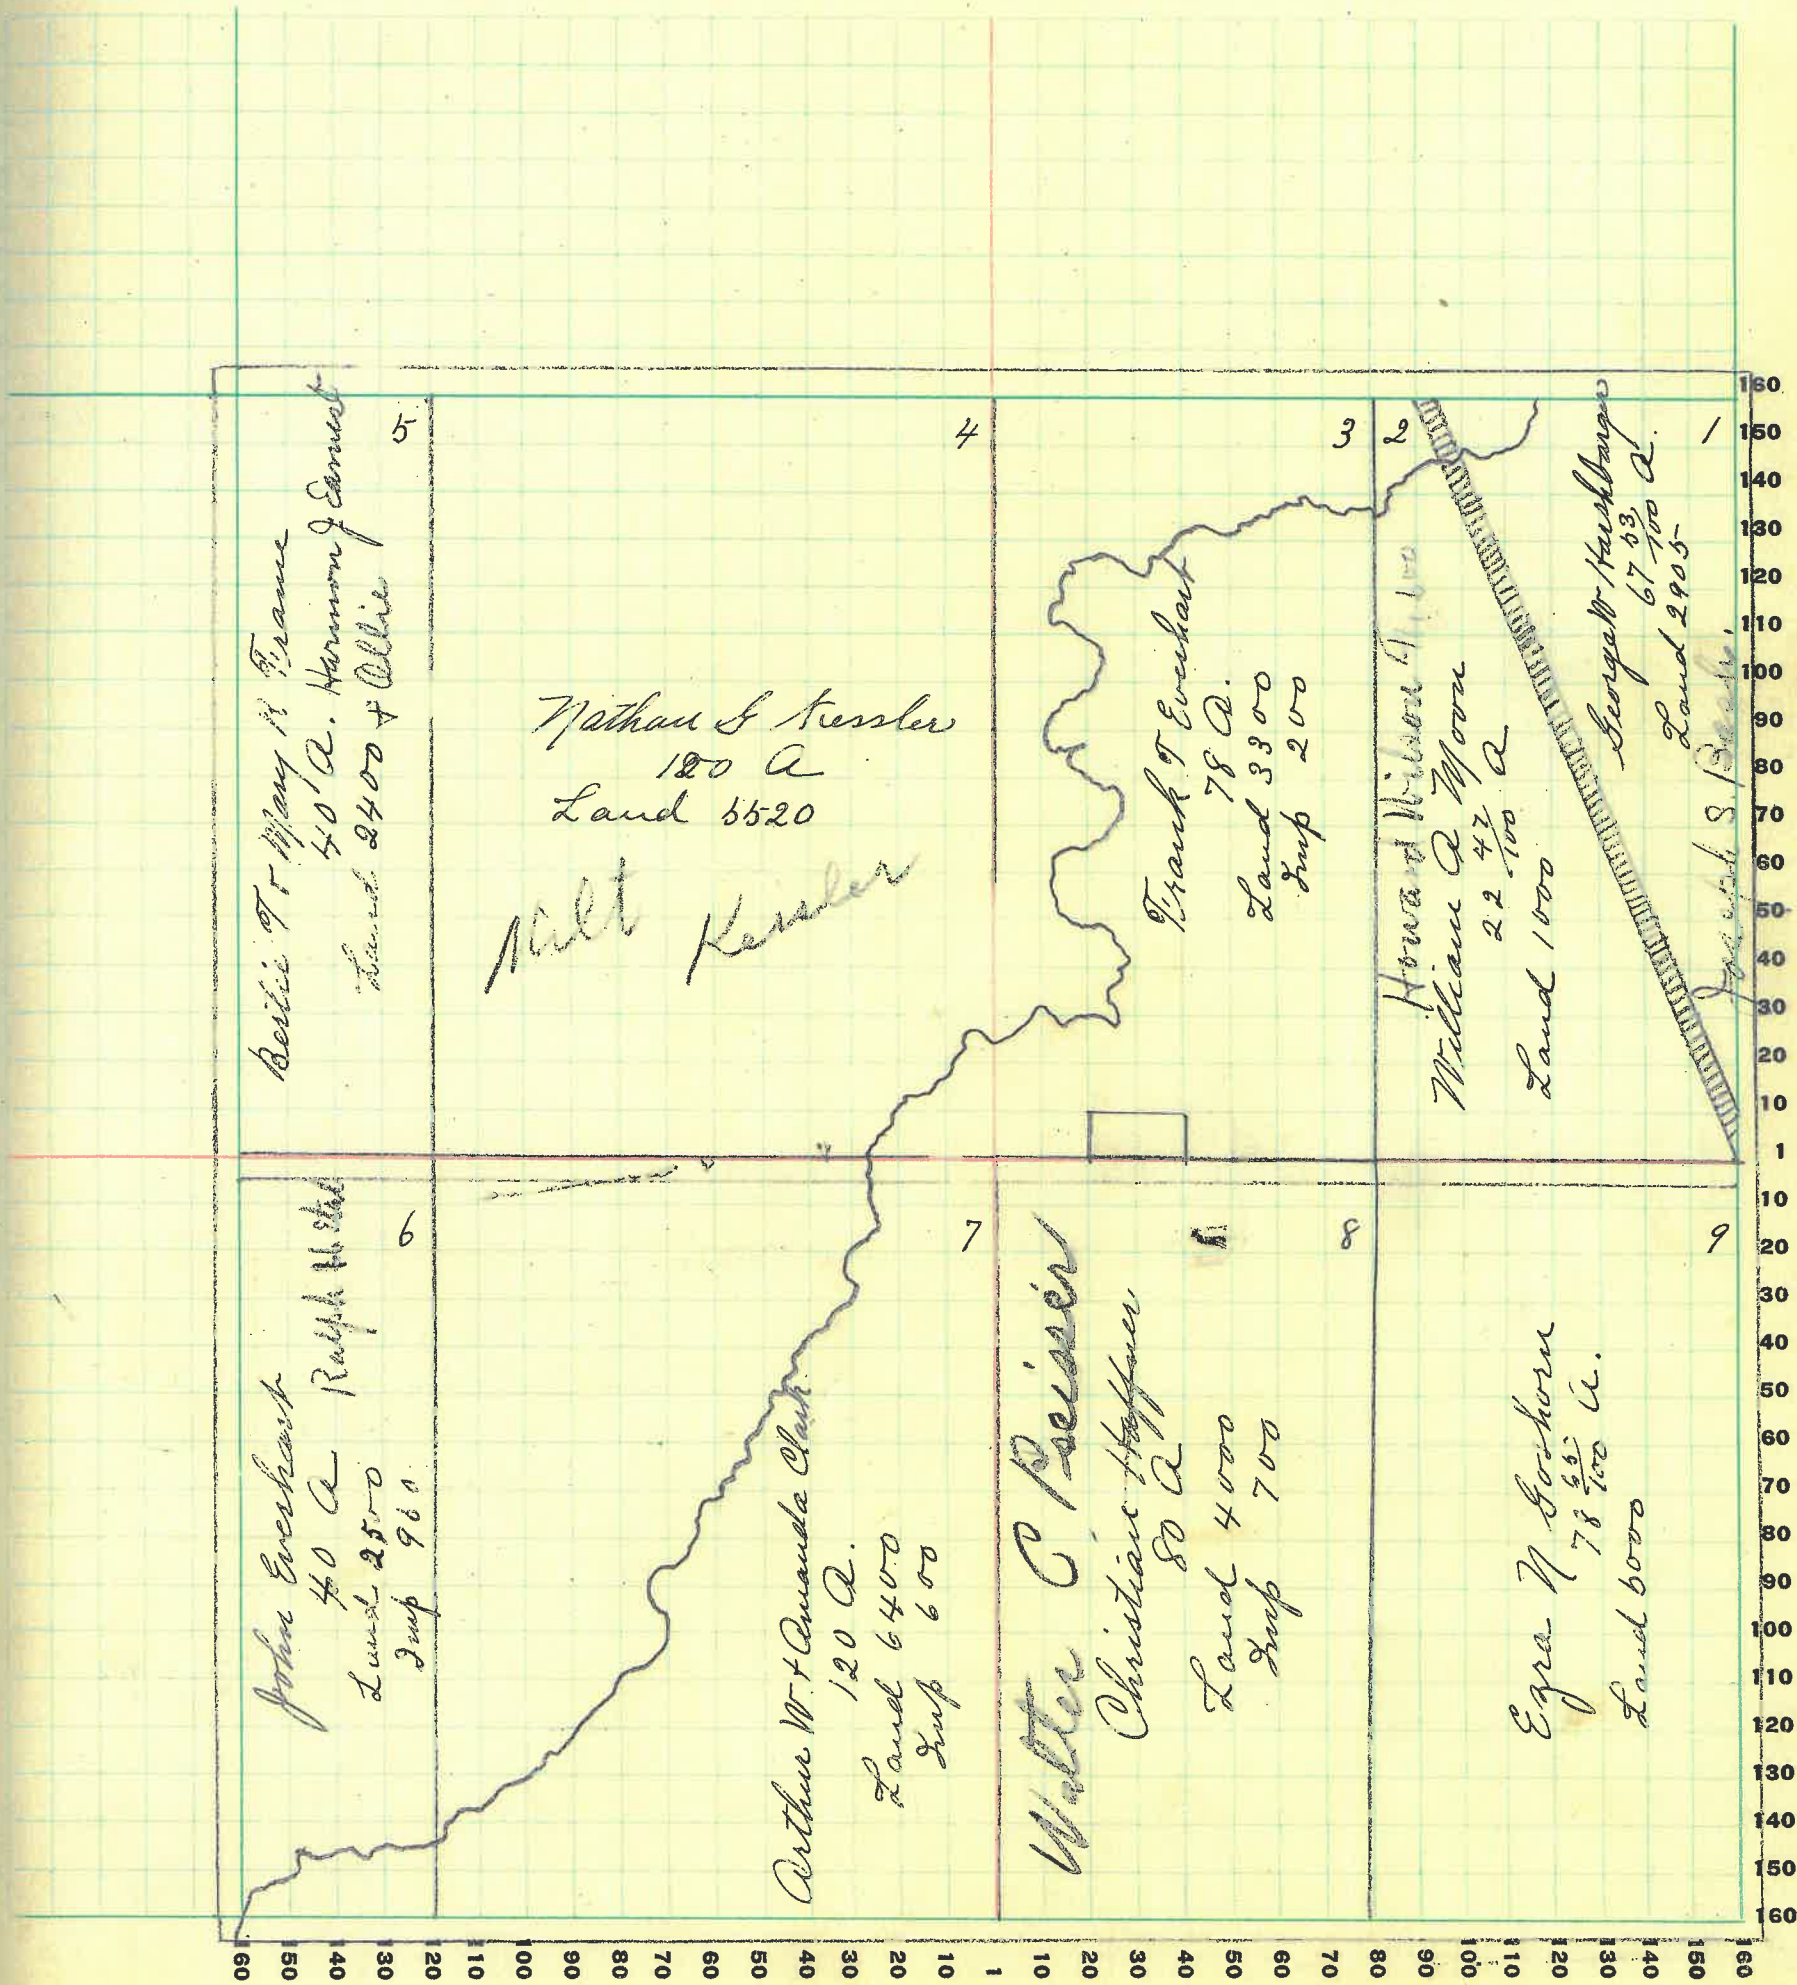 5
Mary R Frame
40 A. Harmon J Earnest
Land 2400 + Allie
4
Nathan G Kessler
120 A
Land 5520
Milt Kessler
3
Frank T Evenhart
78 A.
Land 3300
Imp 200
2
Howard Wilson
William A Moon
22 47/100 A
Land 1000
1
George W Harshbarger
67 53/100 A.
Land 2905
Joseph S
6
John Evenhart
40 A Ralph
Land 2500
Imp 960
7
Arthur W. + Amanda Clark
120 A.
Land 6400
Imp 600
8
Walter C
Christian Haffner
80 A
Land 4000
Imp 700
9
Ezra N Goshorn
78 65/100 A.
Land 6000
160
150
140
130
120
110
100
90
80
70
60
50
40
30
20
10
1
10
20
30
40
50
60
70
80
90
100
110
120
130
140
150
160
60
150
140
130
120
110
100
90
80
70
60
50
40
30
20
10
1
10
20
30
40
50
60
70
80
90
100
110
120
130
140
150
60